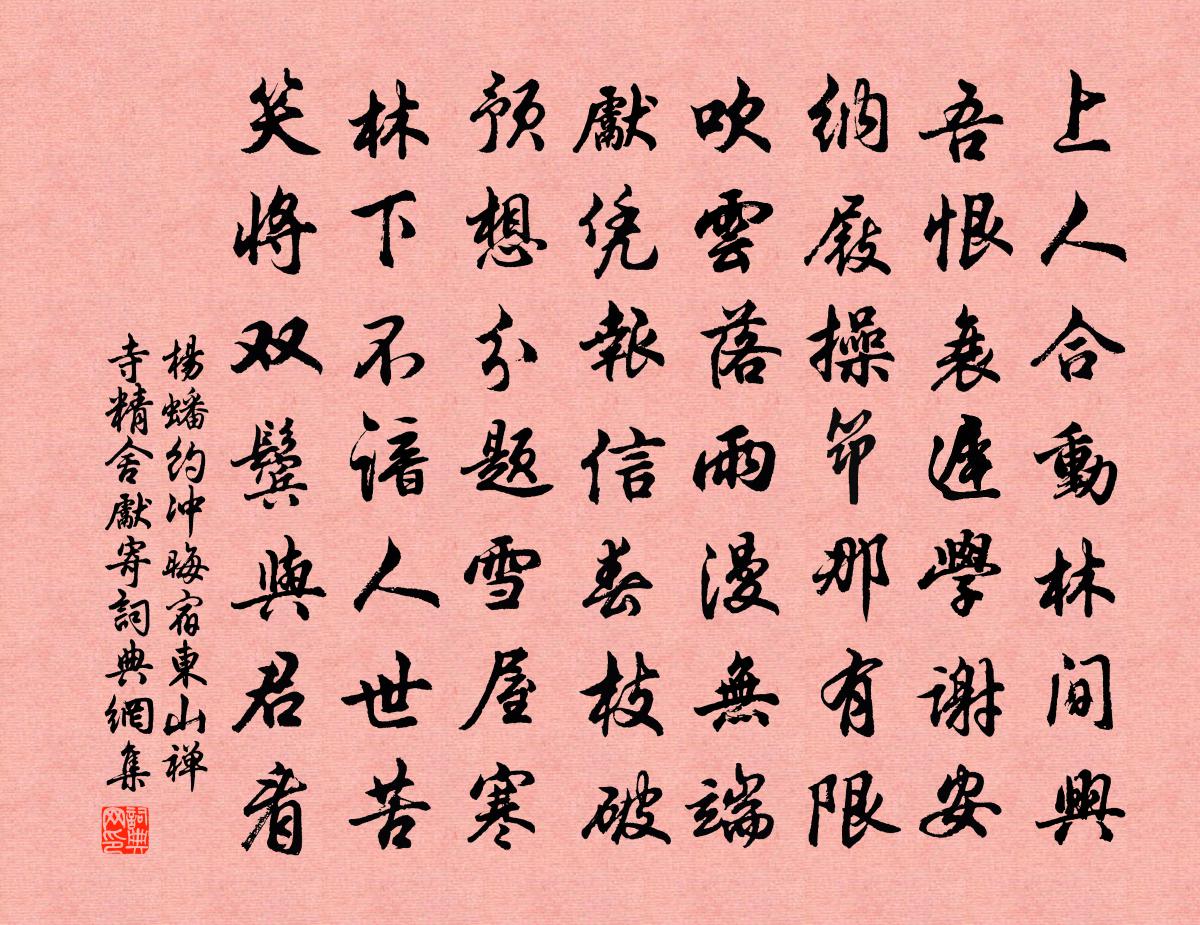 上人合動林間興
吾恨衰遲學謝安
納屐操笻那有限
吹雲落雨漫無端
獻凭報信春枝破
預想分題雪屋寒
林下不諳人世苦
笑將双鬢與君看
楊蟠約冲晦宿東山禅
寺精舍獻寄詞典網集
詞典
网印